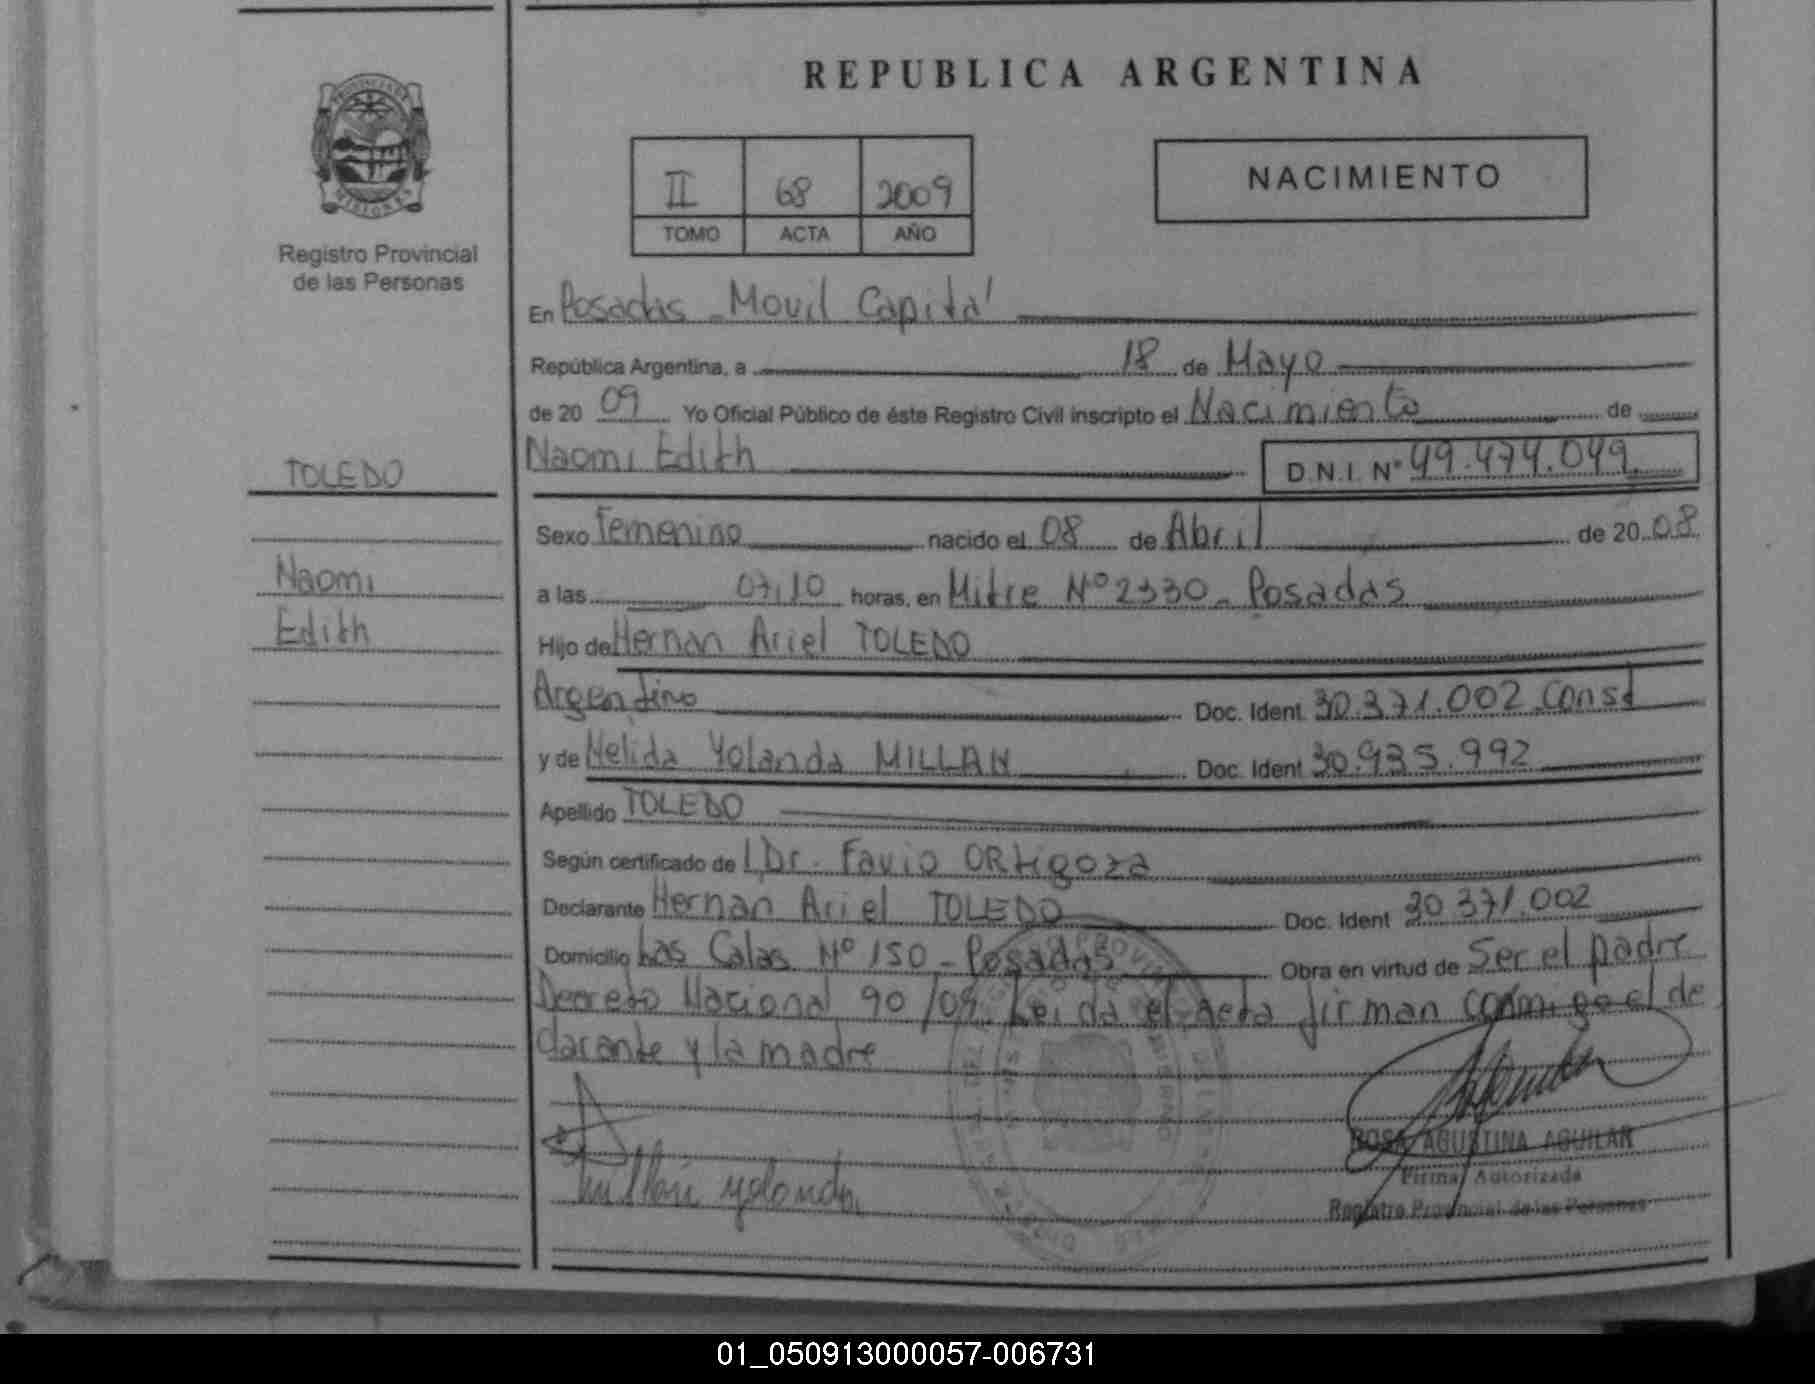 REPUBLICA ARGENTINA
PROVINCIA DE
MISIONES
Registro Provincial
de las Personas
II 68 2009
TOMO ACTA AÑO
NACIMIENTO
En Posadas - Movil Capital
República Argentina, a 18 de Mayo
de 20 09 Yo Oficial Público de éste Registro Civil inscripto el Nacimiento de
Naomi Edith D.N.I. Nº 49.474.049
TOLEDO
Naomi
Edith
Sexo Femenino nacido el 08 de Abril de 20 08
a las 07,10 horas, en Mitre Nº 2330 - Posadas
Hijo de Hernan Ariel TOLEDO
Argentino Doc. Ident 30.371.002 Const
y de Nelida Yolanda MILLAN Doc. Ident 30.935.992
Apellido TOLEDO
Según certificado de Dr. Favio ORtigoza
Declarante Hernan Ariel TOLEDO Doc. Ident 30.371.002
Domicilio Las Calas Nº 150 - Posadas Obra en virtud de Ser el padre
Decreto Nacional 90/09. Leida el acta firman conmigo el de
clarante y la madre
Millan Yolanda
ROSA AGUSTINA AGUILAR
Firma Autorizada
Registro Provincial de las Personas
01_050913000057-006731